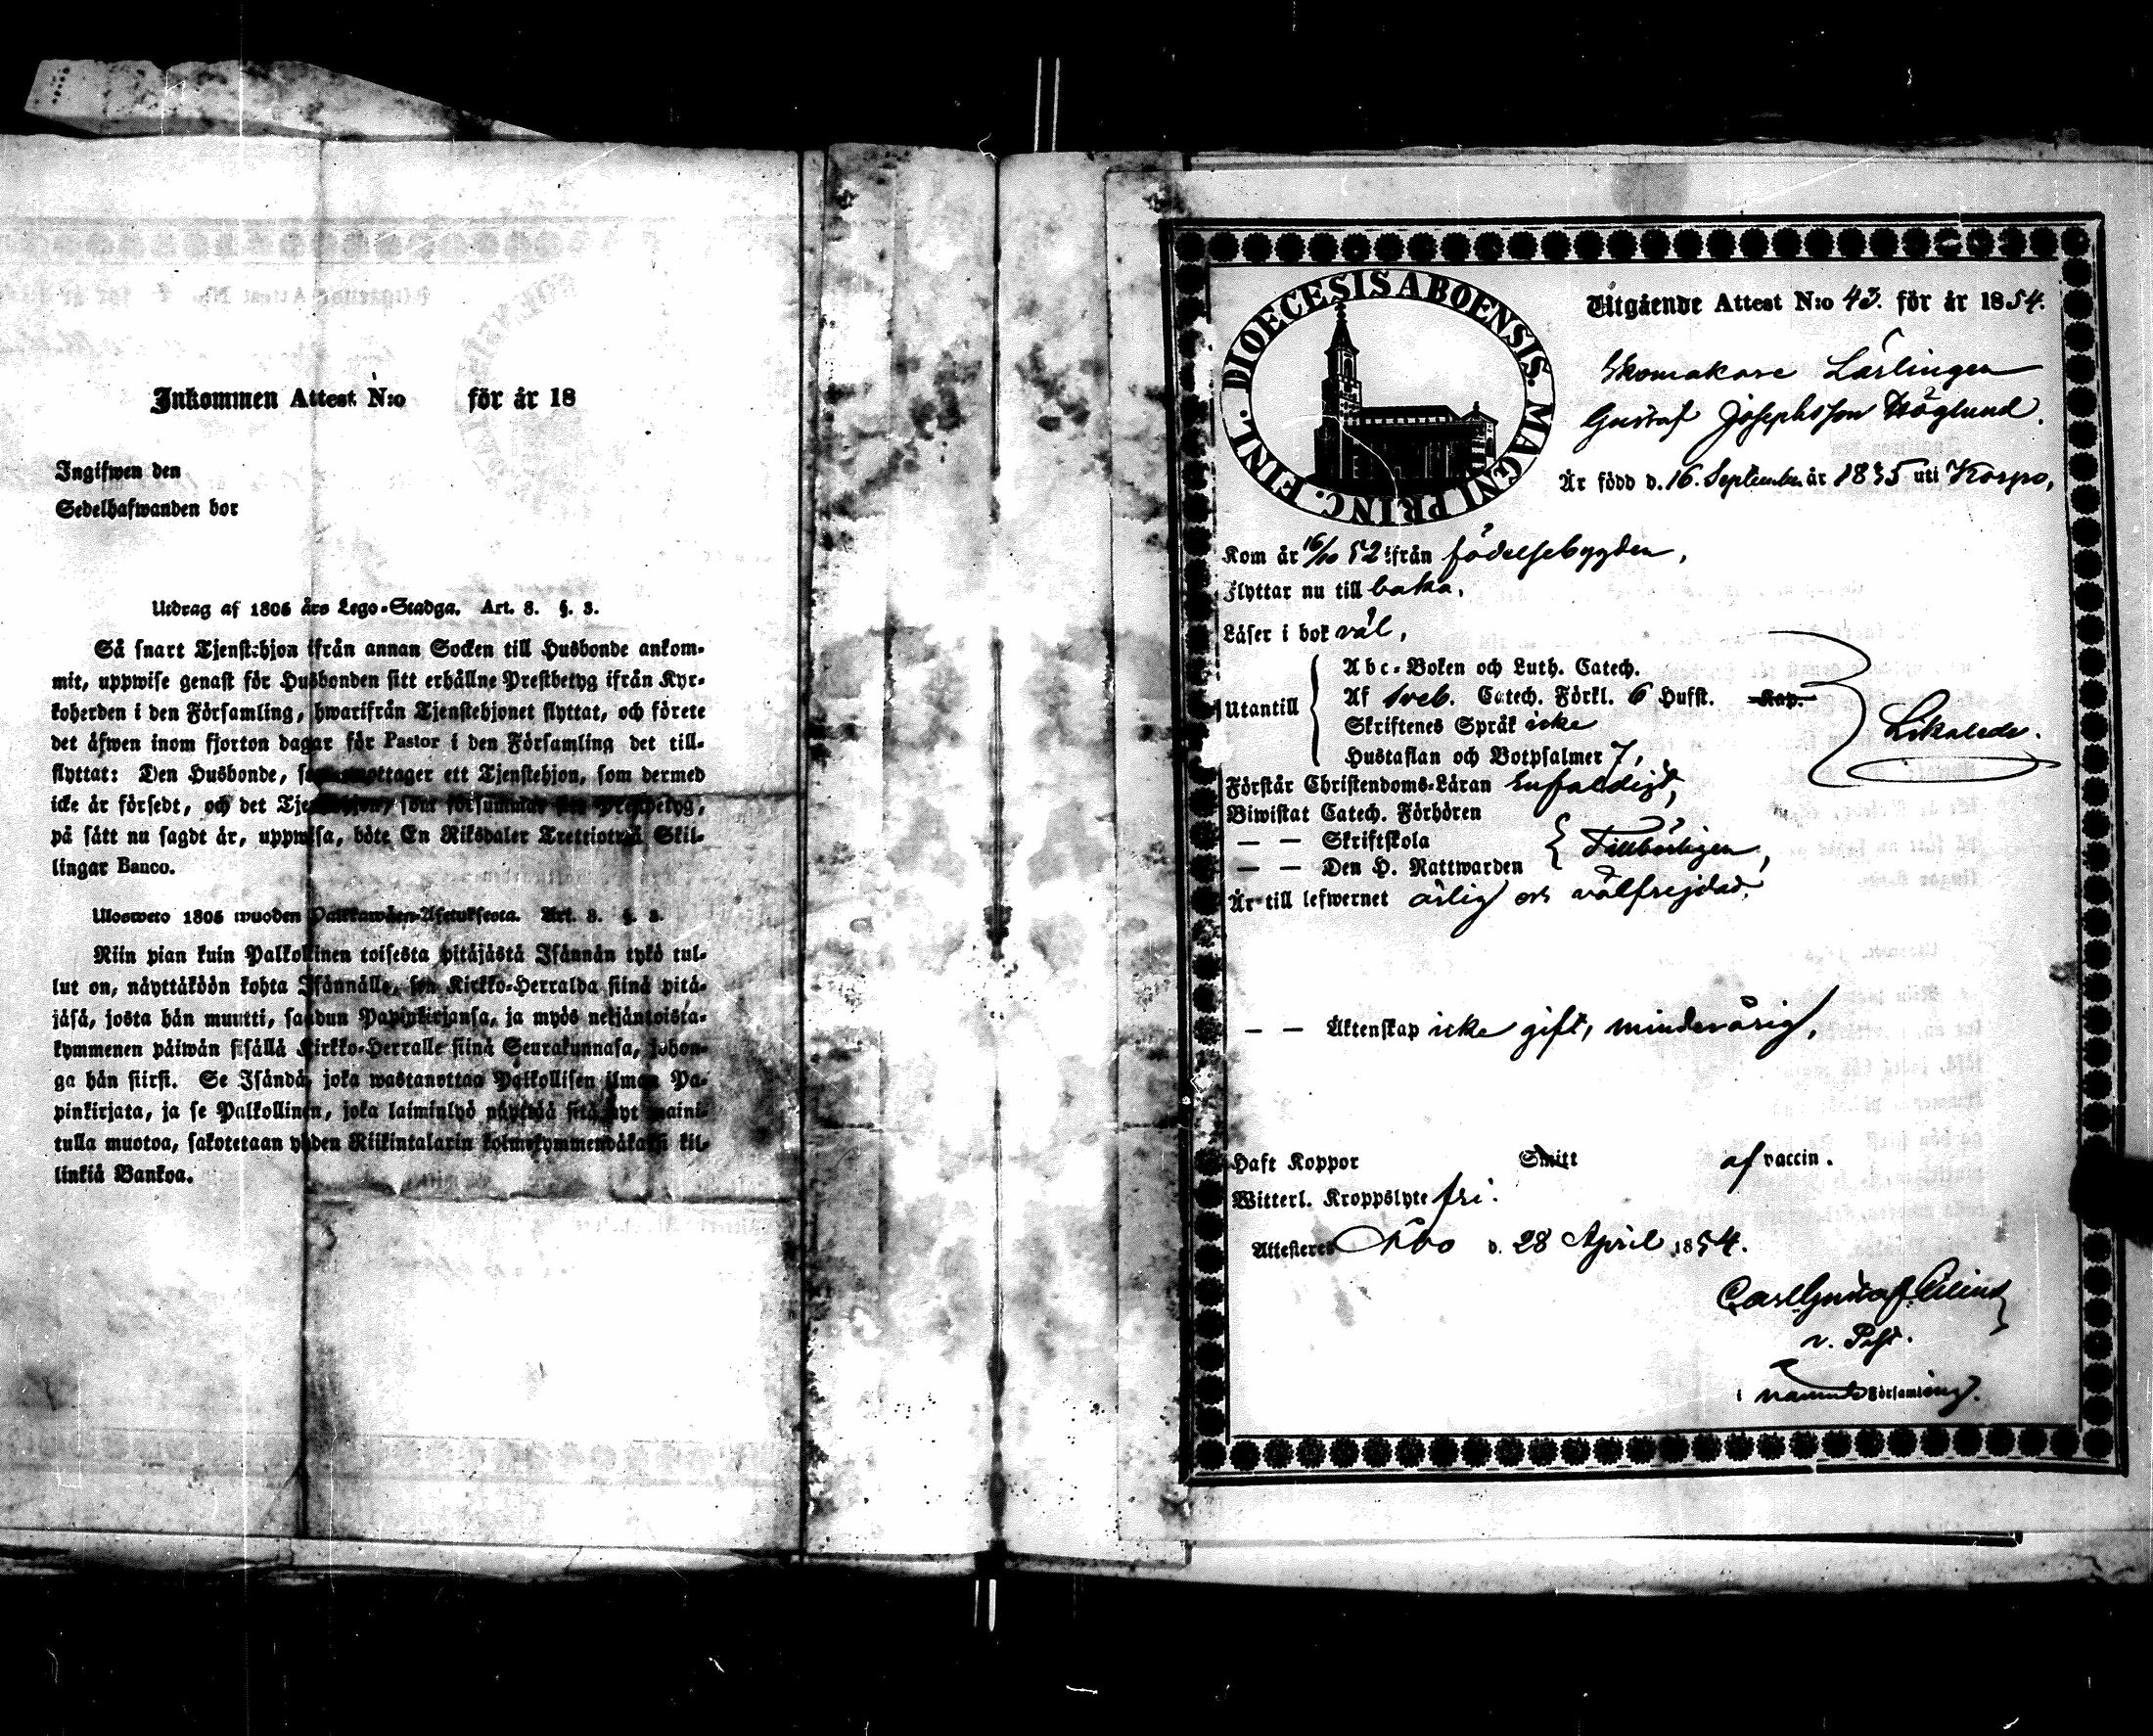 Inkommen Attest N:o för år 18
Ingifwen den
Sedelhafwanden bor
Utdrag af 1805 års Lego-Stadga. Art. 8. §. 3.
Så snart Tjenstehjon ifrån annan Socken till Husbonde ankom-
mit, uppwise genast för Husbonden sitt erhållne Prestbetyg ifrån Kyr-
koherden i den Församling, hwarifrån Tjenstehjonet flyttat, och förete
det äfwen inom fjorton dagar för Pastor i den Församling det till-
flyttat: Den Husbonde, som emottager ett Tjenstehjon, som dermed
icke är försedt, och det Tjenstehjon, som försummar sitt Prestbetyg,
på sätt nu sagdt är, uppwisa, böte En Riksdaler Trettiotwå Skil-
lingar Banco.
Ulosweto 1805 wuoden Palkkawäen-Asetuksesta. Art. 8. §. 3.
Niin pian kuin Palkollinen toisesta pitäjästä Isännän tykö tul-
lut on, näyttäköön kohta Isännälle, sen Kirkko-Herralda siinä pitä-
jäsä, josta hän muutti, saadun Papinkirjansa, ja myös neljäntoista-
kymmenen päiwän sisällä Kirkko-Herralle siinä Seurakunnasa, johon-
ga hän siirsi. Se Isändä, joka wastanottaa Palkollisen ilman Pa-
pinkirjata, ja se Palkollinen, joka laiminlyö näyttää sitä nyt maini-
tulla muotoa, sakotetaan yhden Riikintalarin kolmekymmendäkaksi kil-
linkiä Bankoa.
DIOECESIS ABOENSIS. MAGNI PRINC. FINL.
Utgående Attest N:o 43. för år 1854.
Skomakare Lärlingen
Gustaf Josephsson Höglund.
Är född d. 16. September år 1835 uti Korpo,
Kom år 16/10 52 ifrån födelsebygden,
Flyttar nu till baka.
Läser i bok väl,
Utantill
Abc-Boken och Luth. Catech.
Af Sveb. Catech. Förkl. 6 Hufst. Kap.
Skriftenes Språk icke
Hustaflan och Botpsalmer 7,
Likaledes.
Förstår Christendoms-Läran enfaldigt,
Biwistat Catech. Förhören
— — Skriftskola
— — Den H. Nattwarden
Tillbörligen,
Är till lefwernet ärlig och välfrejdad.
— — Äktenskap icke gift, minderårig,
Haft Koppor Smitt af vaccin.
Witterl. Kroppslyte fri.
Attesteras Åbo d. 28 April 1854.
Carl Gustaf
v. Past.
i nämnde Församling.